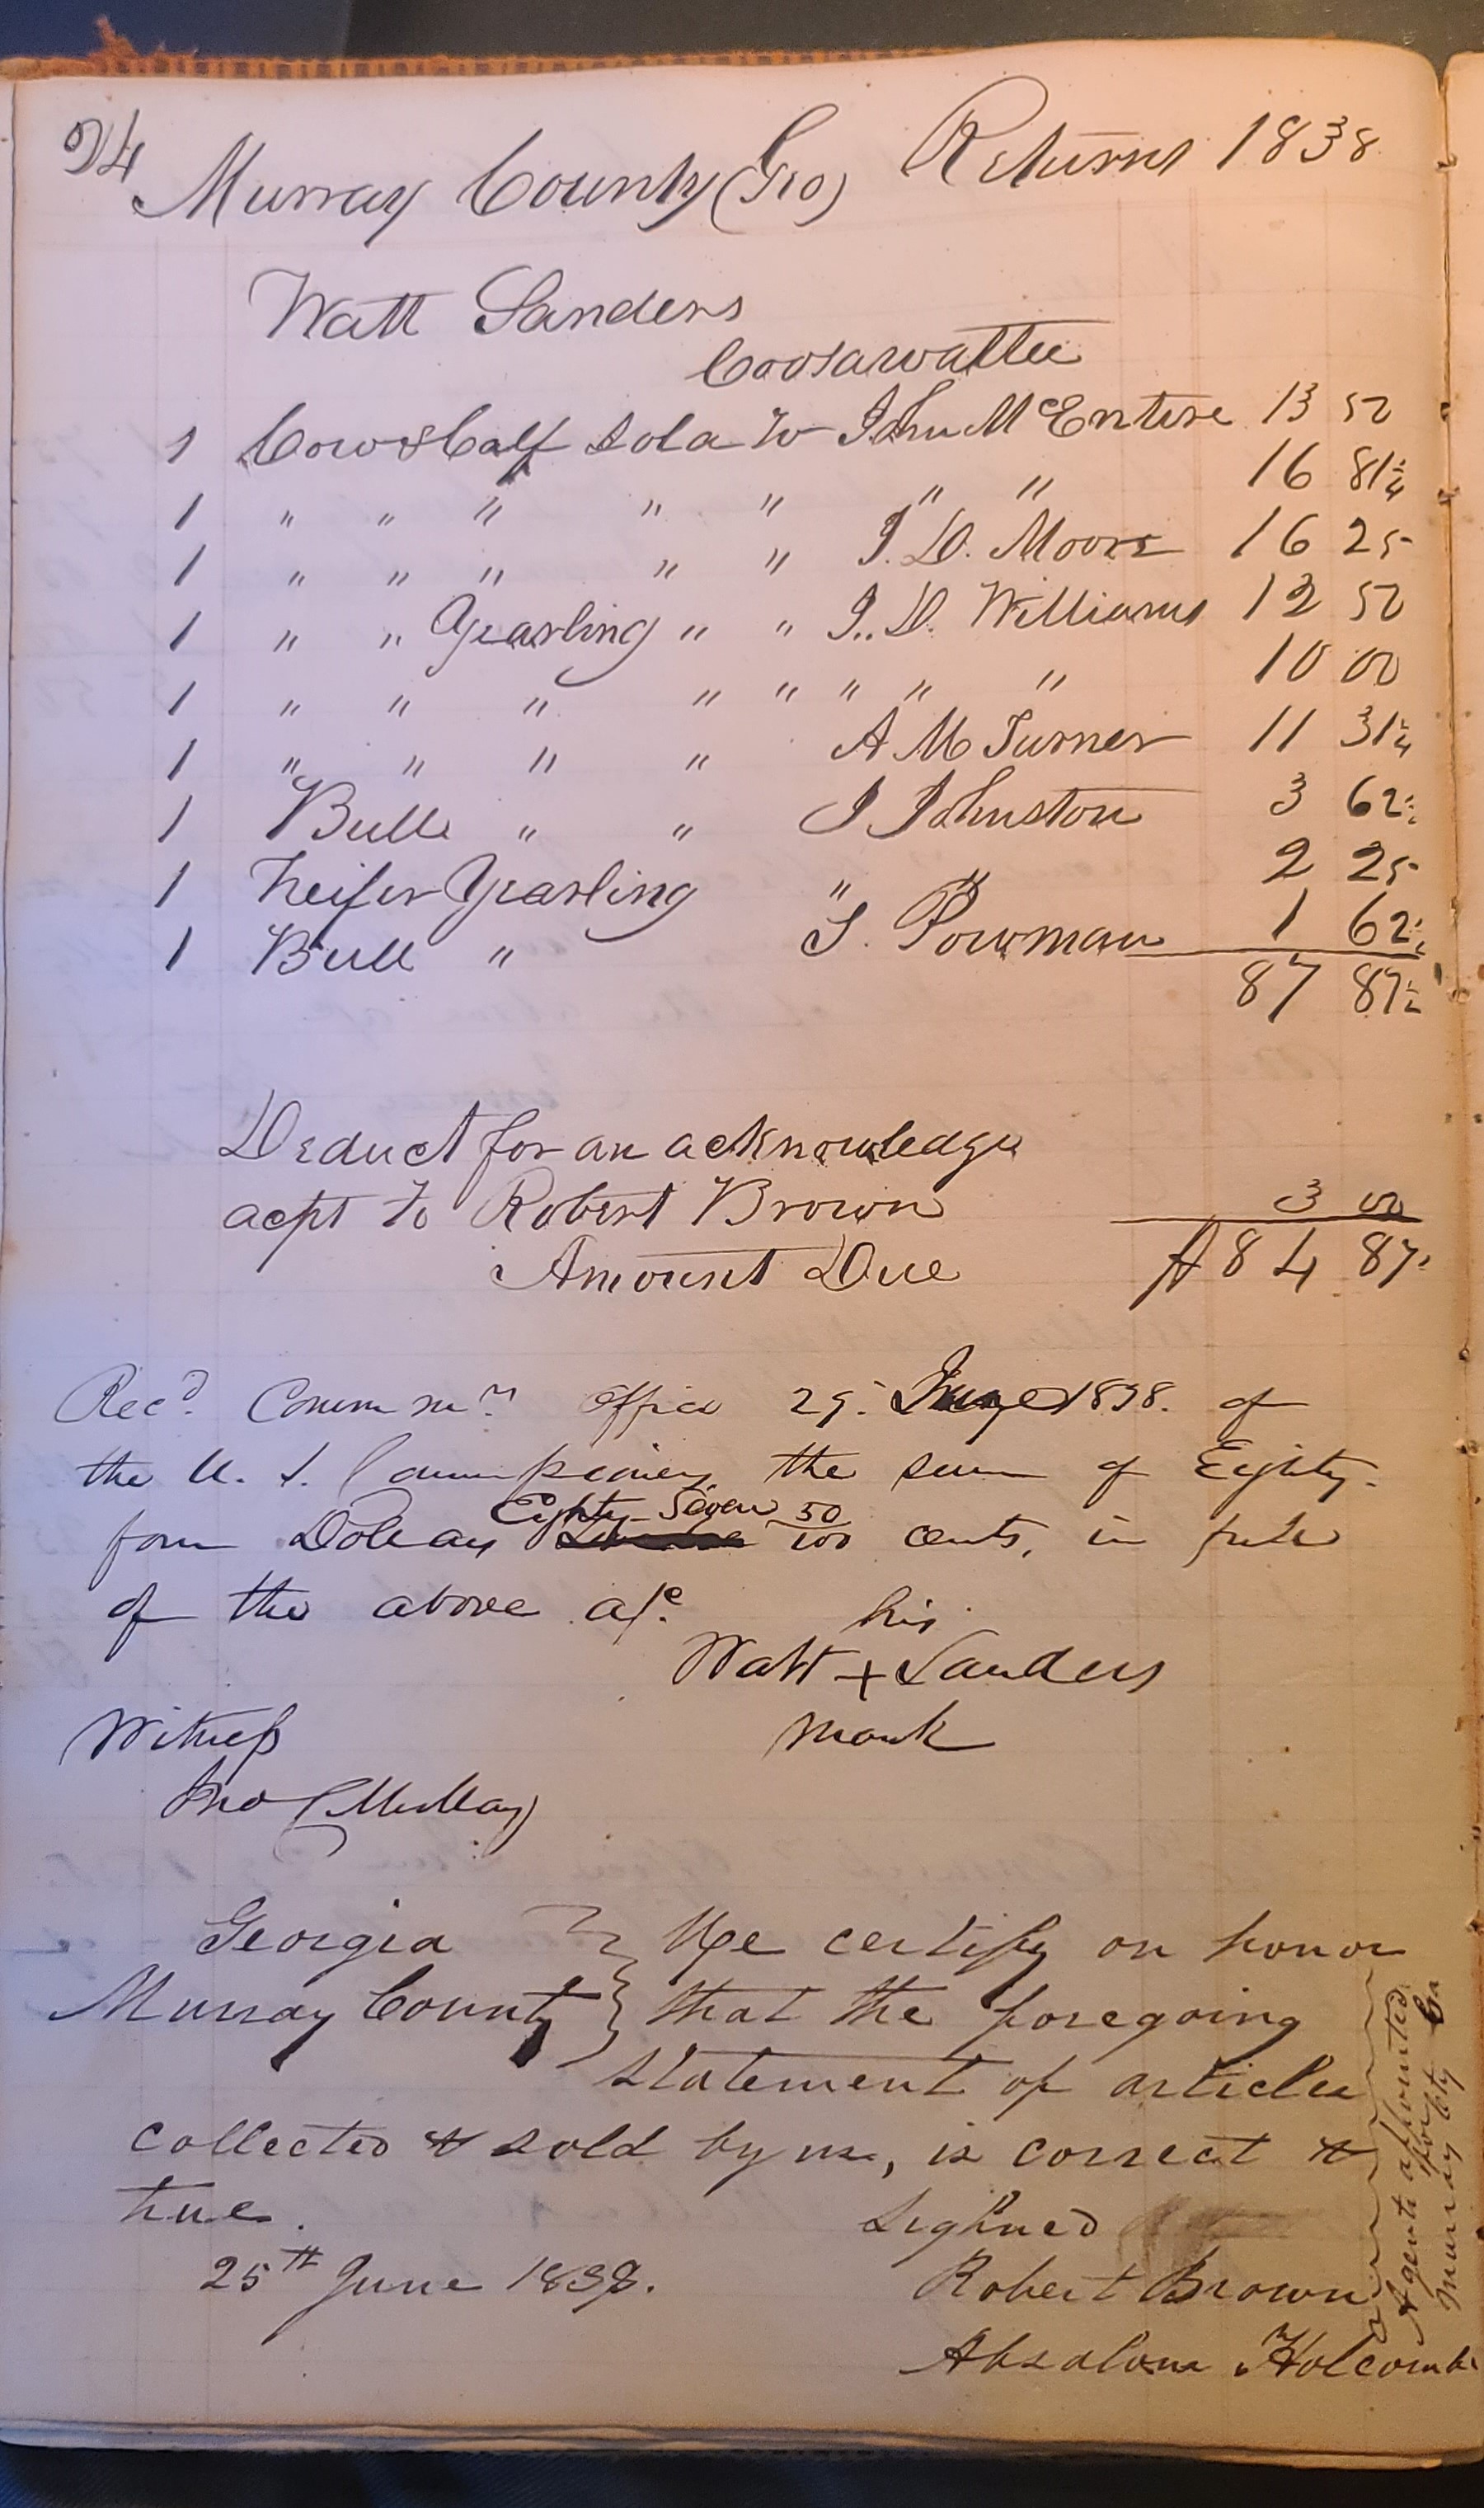 94
Murray County (Geo) Returns 1838
Watt Sanders
Coosawattee
1 Cow & Calf sold to John McEntire 13 50
1 " " " " " " " 16 81¼
1 " " " " " J. D. Moore 16 25
1 " " Yearling " " J. D. Williams 12 50
1 " " " " " " " " 10 00
1 " " " " A M Turner 11 31¼
1 Bull " " J Johnston 3 62½
1 Heifer Yearling " " 2 25
1 Bull " S. Powman 1 62½
87 87½
Deduct for an acknowledge
acpt to Robert Brown 3 00
Amount Due $84 87½
Recd. Commrs. Office 29. June 1838. of
the U. S. Commissioners the sum of Eighty-
four Dollars Eighty-Seven 50/100 cents, in full
of the above a/c.
his
Watt + Sanders
mark
Witness
Jno C Mullay
Georgia } We certify on honor
Murray County } that the foregoing
statement of articles
collected & sold by us, is correct &
true.
Sighned
25th June 1838.
Robert Brown
Absalom Holcomb
Agents appointed
for
Murray Cty Ga